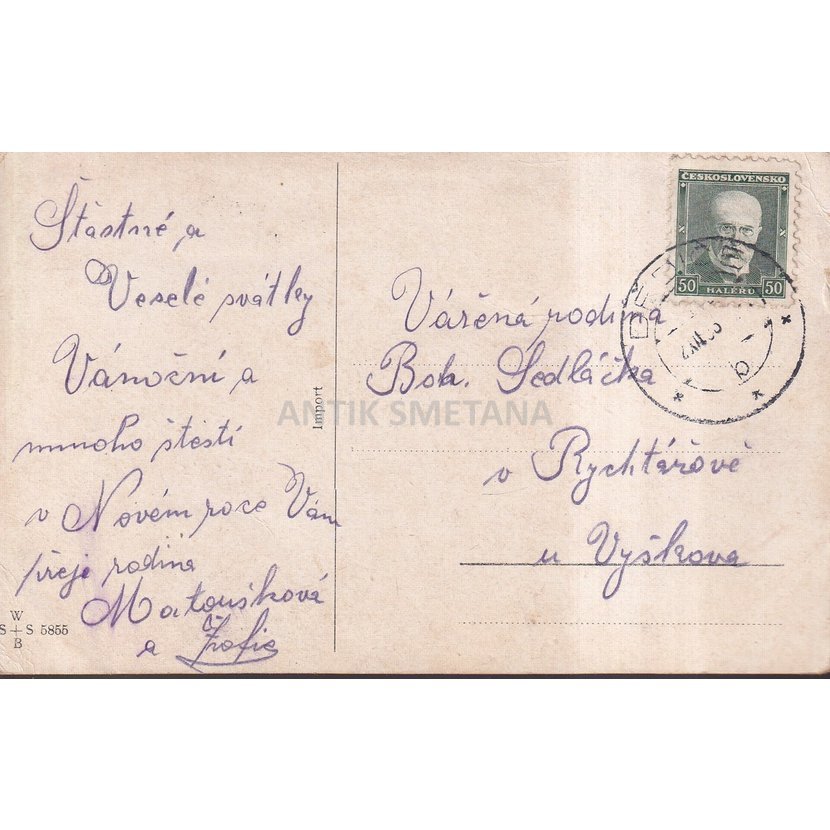 Štastné a
Veselé svátky
Vánoční a
mnoho štěstí
v Novém roce Vám
přeje rodina
Matoušková
a Žofie
W
S + S 5855
B
Import
ČESKOSLOVENSKO
50 HALÉŘŮ 50
Vážená rodina
Boh. Sedláčka
v Rychtářově
u Vyškova
ANTIK SMETANA